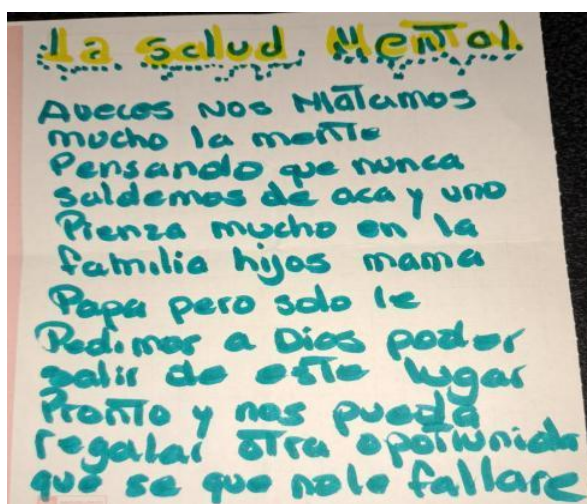 La salud Mental.
Aveces Nos Matamos
mucho la mente
Pensando que nunca
saldemos de aca y uno
Pienza mucho en la
familia hijos mama
Papa pero solo le
Pedimos a Dios poder
salir de este lugar
Pronto y nos pueda
regalar otra opotiunida
que se que no le fallare